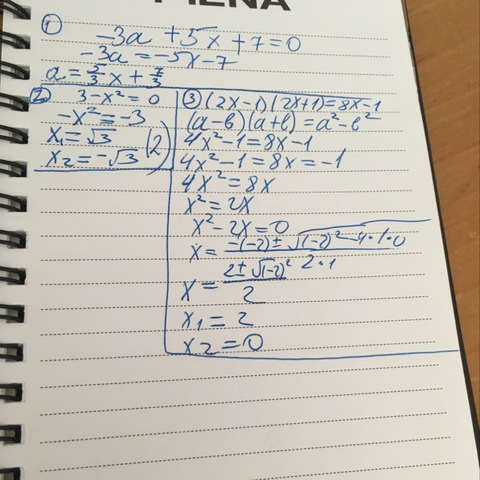 MENA
① -3a + 5x + 7 = 0
-3a = -5x - 7
a = 5/3 x + 7/3
② 3 - x² = 0
-x² = -3
x₁ = √3
x₂ = -√3 (2)
③ (2x-1)(2x+1) = 8x-1
(a-b)(a+b) = a²-b²
4x²-1 = 8x-1
4x²-1 = 8x = -1
4x² = 8x
x² = 2x
x² - 2x = 0
x = -(-2) ± √(-2)² - 4·1·0 / 2·1
x = 2 ± √(-2)² / 2
x₁ = 2
x₂ = 0